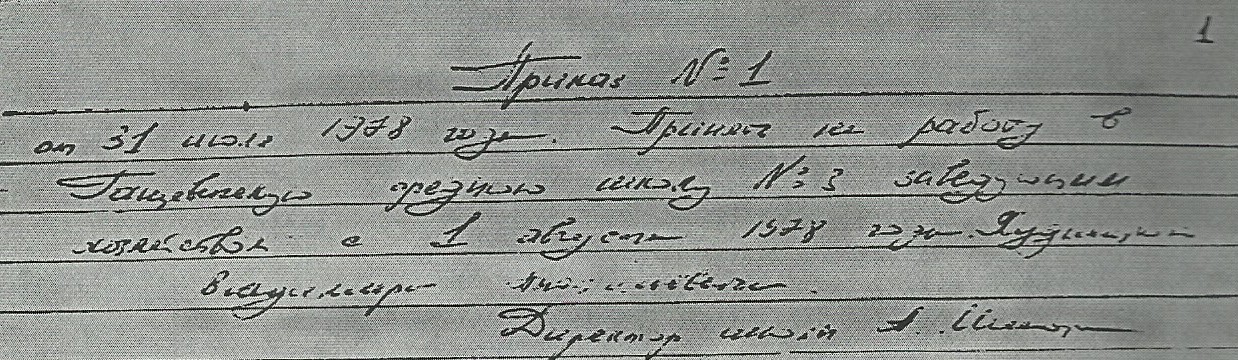 1
Приказ № 1
от 31 июля 1978 года. Принять на работу в
Ганцевичскую среднюю школу № 3 заведующим
хозяйством с 1 августа 1978 года
Владимира
Директор школы А.